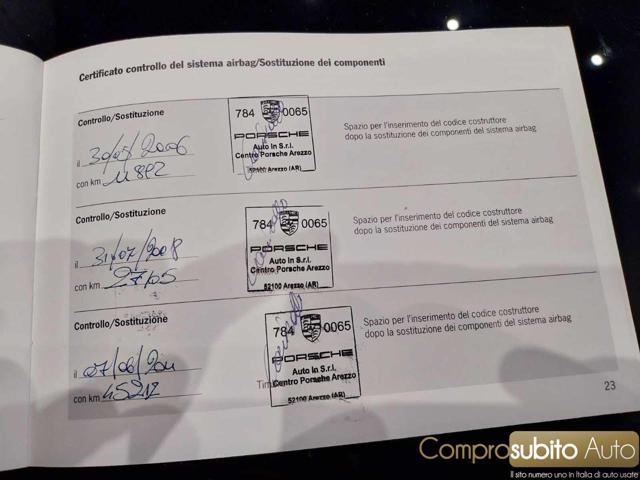 Certificato controllo del sistema airbag/Sostituzione dei componenti
Controllo/Sostituzione
il 30/05/2006
con km 11892
784 0065
PORSCHE
Auto In S.r.l.
Centro Porsche Arezzo
52100 Arezzo (AR)
Spazio per l'inserimento del codice costruttore
dopo la sostituzione dei componenti del sistema airbag
Controllo/Sostituzione
il 31/07/2008
con km
784 0065
PORSCHE
Auto In S.r.l.
Centro Porsche Arezzo
52100 Arezzo (AR)
Spazio per l'inserimento del codice costruttore
dopo la sostituzione dei componenti del sistema airbag
Controllo/Sostituzione
il 07/06/2011
con km 45212
784 0065
PORSCHE
Auto In S.r.l.
Centro Porsche Arezzo
52100 Arezzo (AR)
Spazio per l'inserimento del codice costruttore
dopo la sostituzione dei componenti del sistema airbag
23
Comprosubito Auto
Il sito numero uno in Italia di auto usate